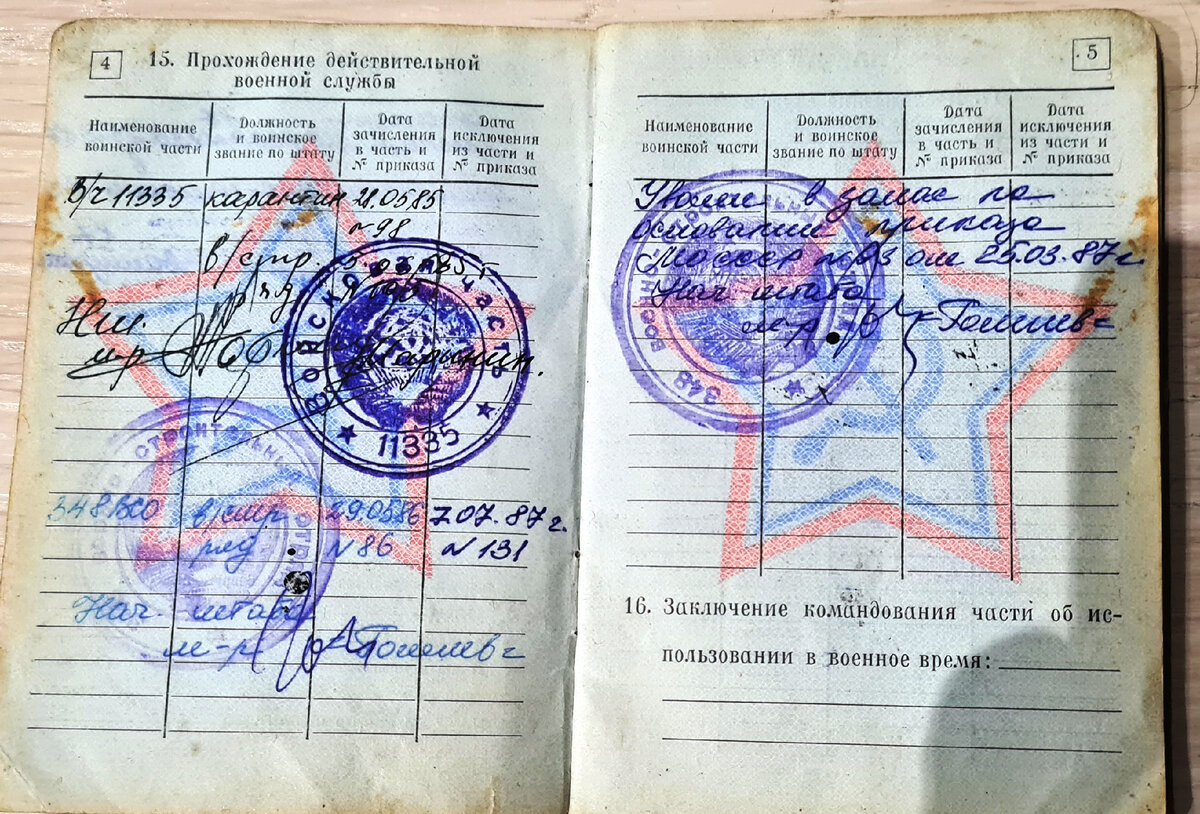 4
15. Прохождение действительной
военной службы
Наименование воинской части
Должность и воинское звание по штату
Дата зачисления в часть и № приказа
Дата исключения из части и № приказа
в/ч 11335 карантин 28.05.85
N98
в/стр.
ряд.
Нш.
м-р
ВОЙСКОВАЯ ЧАСТЬ
★ 11335 ★
348 ВСО в/стр. 29.05.86 7.07.87г.
ряд N86 N131
Нач. штаба
м-р
5
Наименование воинской части
Должность и воинское звание по штату
Дата зачисления в часть и № приказа
Дата исключения из части и № приказа
Уволен в запас на
основании приказа
МО СССР N93 от 25.03.87г.
Нач штаба
м-р
348
16. Заключение командования части об ис-
пользовании в военное время: